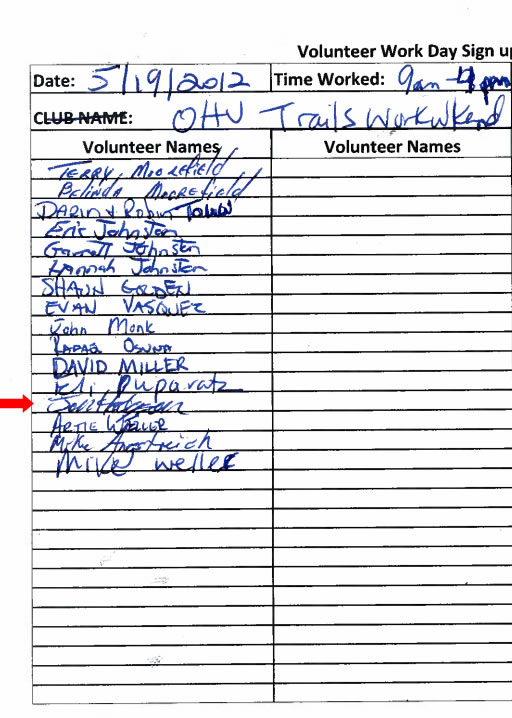 Volunteer Work Day Sign u
Date: 5/19/2012 Time Worked: 9am - 4pm
CLUB NAME: OHV Trails Work Wkend
Volunteer Names Volunteer Names
TERRY Moorefield
BELINDA MooREfield
DARIN & Robin
Eric Johnston
Garrett Johnston
Hannah Johnston
SHAUN GOLDEN
EVAN VASQUEZ
John Monk
RAFAEL OSUNA
DAVID MILLER
Eli Puparatz
ARTIE WELLER
Mike
Mike weller